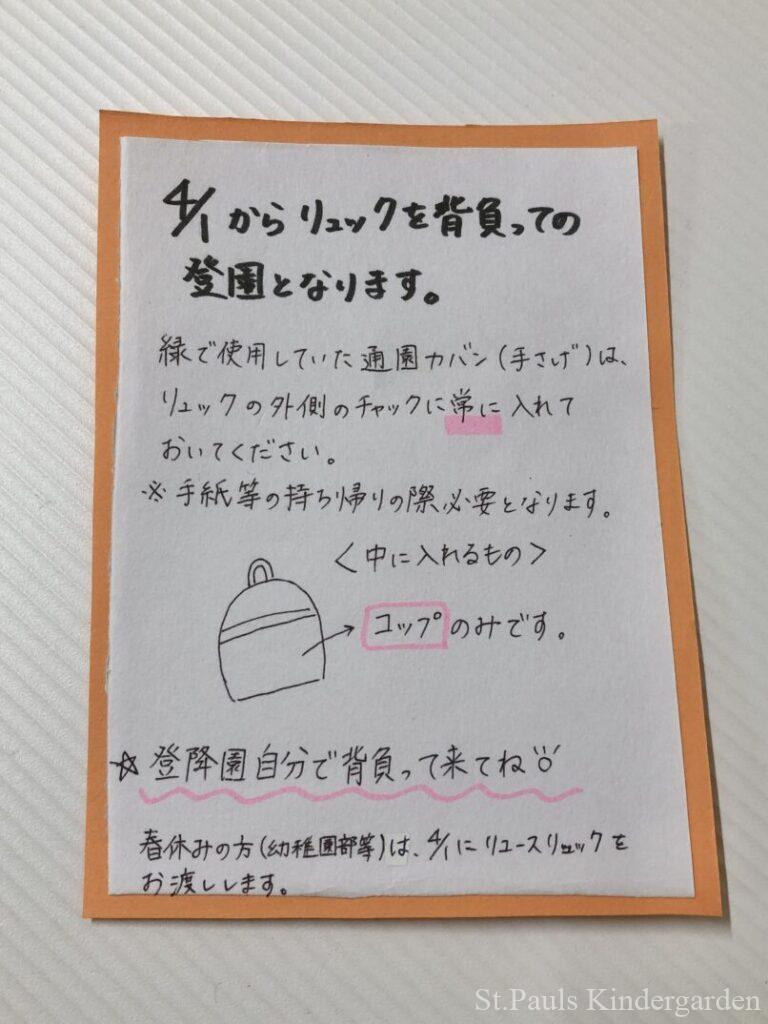 4/1からリュックを背負っての
登園となります。
緑で使用していた通園カバン(手さげ)は、
リュックの外側のチャックに常に入れて
おいてください。
※手紙等の持ち帰りの際必要となります。
<中に入れるもの>
コップのみです。
☆登降園自分で背負って来てね
春休みの方(幼稚園部等)は、4/1にリユースリュックを
お渡しします。
St.Pauls Kindergarden